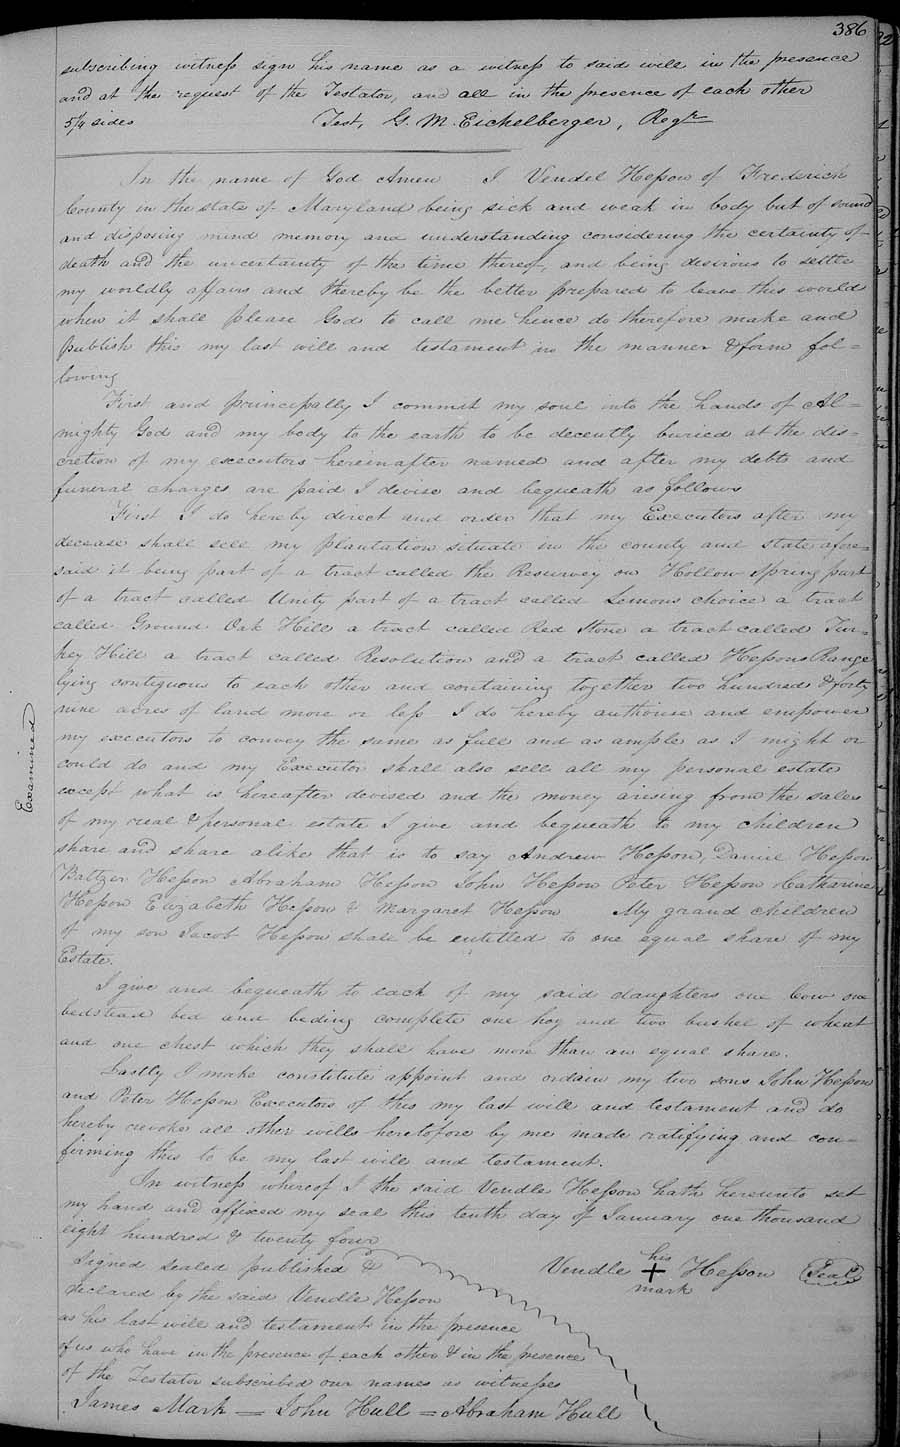 386
subscribing witness sign his name as a witness to said will in the presence
and at the request of the Testator, and all in the presence of each other
5¼ sides Test, G. M. Eichelberger, Regr
In the name of God Amen I Vendel Hesson of Frederick
County in the state of Maryland being sick and weak in body but of sound
and disposing mind memory and understanding considering the certainty of
death and the uncertainty of the time thereof, and being desirous to settle
my worldly affairs and thereby be the better prepared to leave this world
when it shall please God to call me hence do therefore make and
publish this my last will and testament in the manner & form fol=
lowing
First and principally I commit my soul into the hands of Al=
mighty God and my body to the earth to be decently buried at the dis=
cretion of my executors hereinafter named and after my debts and
funeral charges are paid I devise and bequeath as follows
First I do hereby direct and order that my Executors after my
decease shall sell my plantation situate in the county and state afore=
said it being part of a tract called the Resurvey on Hollow Spring part
of a tract called Unity part of a tract called Lemons choice a tract
called Ground Oak Hill a tract called Red Stone a tract called Tur=
key Hill a tract called Resolution and a tract called Hessons Range
lying contiguous to each other and containing together two hundred & forty
nine acres of land more or less I do hereby authorise and empower
my executors to convey the same as full and as ample as I might or
could do and my Executor shall also sell all my personal estate
except what is hereafter devised and the money arising from the sales
of my real & personal estate I give and bequeath to my children
share and share alike that is to say Andrew Hesson, Daniel Hesson
Baltzer Hesson Abraham Hesson John Hesson Peter Hesson Catharine
Hesson Elizabeth Hesson & Margaret Hesson My grand children
of my son Jacob Hesson shall be entitled to one equal share of my
Estate.
I give and bequeath to each of my said daughters one Cow one
bedstead bed and beding complete one hog and two bushel of wheat
and one chest which they shall have more than an equal share.
Lastly I make constitute appoint and ordain my two sons John Hesson
and Peter Hesson Executors of this my last will and testament and do
hereby revoke all other wills heretofore by me made ratifying and con=
firming this to be my last will and testament.
In witness whereof I the said Vendle Hesson hath hereunto set
my hand and affixed my seal this tenth day of January one thousand
eight hundred & twenty four
Signed sealed published & Vendle his + mark Hesson Seal
declared by the said Vendle Hesson
as his last will and testament in the presence
of us who have in the presence of each other & in the presence
of the Testator subscribed our names as witnesses
James Mark = John Hull = Abraham Hull
Examined